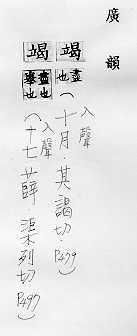 廣韻
竭 盡也（入聲十月．其謁切．P479）
竭 盡也舉也（入聲十七薛 渠列切 P497）